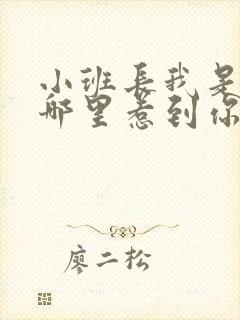 小班长我是
哪里惹到你
廖二松